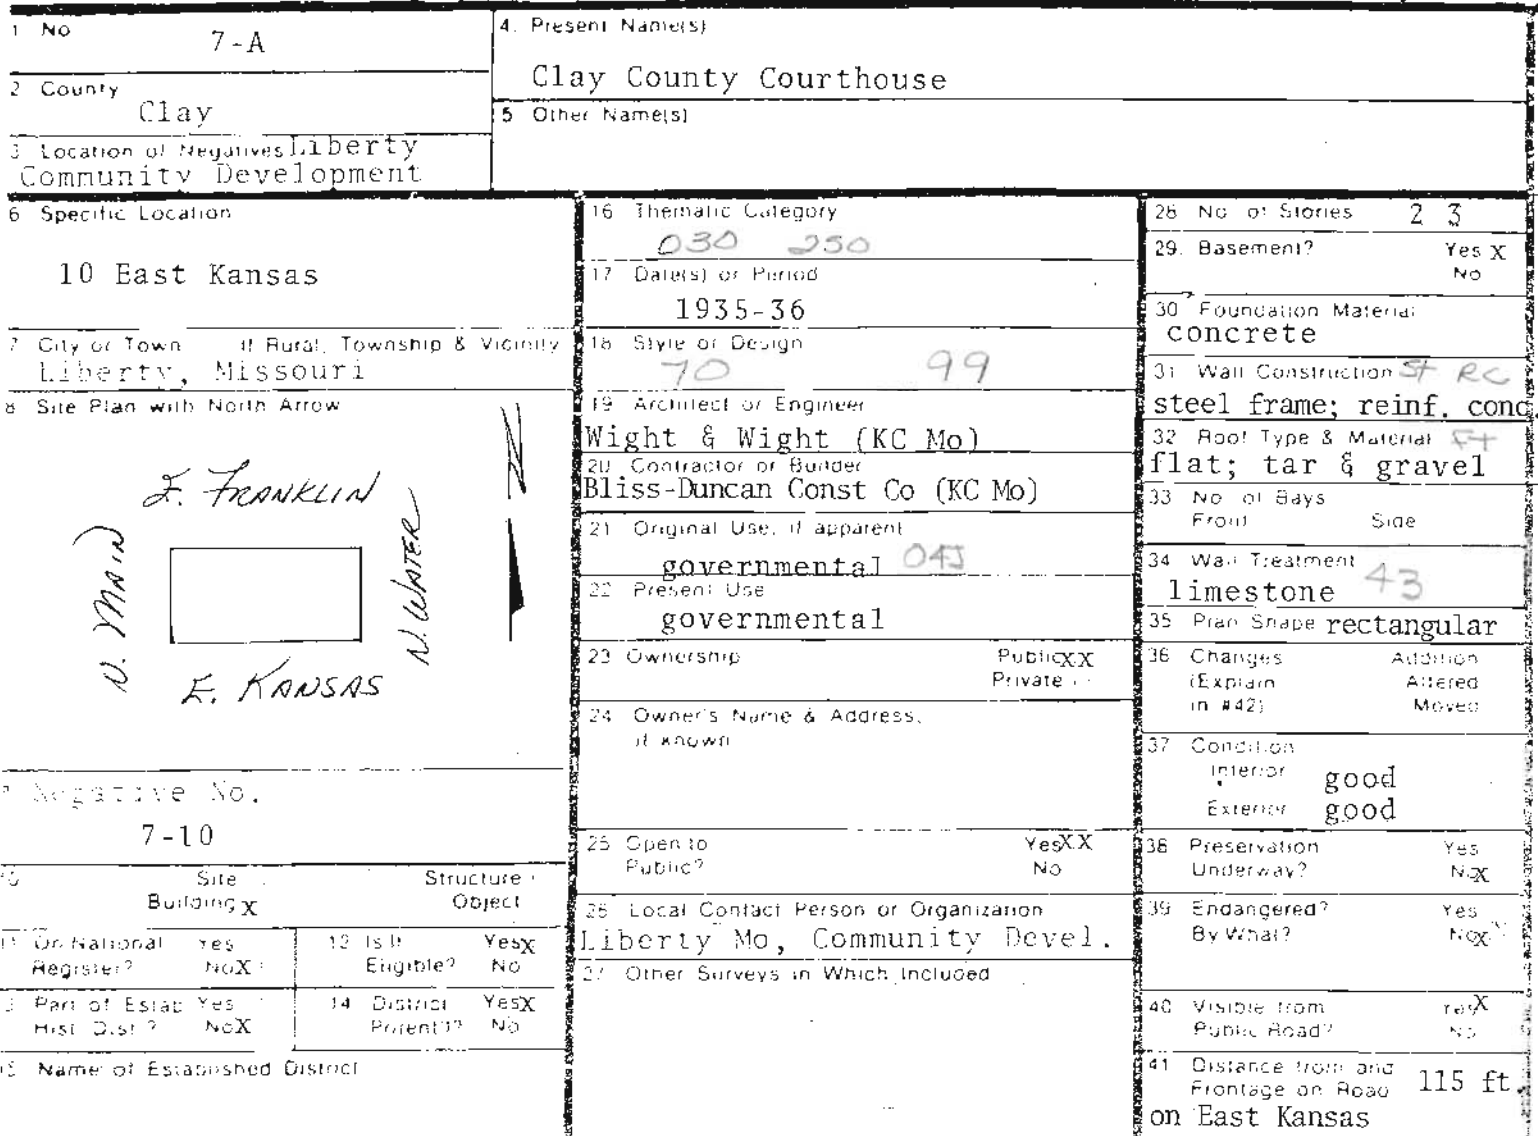 1 No
7-A
2 County
Clay
3 Location of Negatives Liberty
Community Development
4. Present Name(s)
Clay County Courthouse
5 Other Name(s)
6 Specific Location
10 East Kansas
7 City or Town If Rural, Township & Vicinity
Liberty, Missouri
8 Site Plan with North Arrow
N
E. FRANKLIN
N. MAIN
N. WATER
E. KANSAS
9 Negative No.
7-10
10 Site Structure
Building X Object
11 On National Yes
Register? No X
12 Is It Yes X
Eligible? No
13 Part of Estab Yes
Hist. Dist.? No X
14 District Yes X
Potent'l? No
15 Name of Established District
16 Thematic Category
030 250
17 Date(s) or Period
1935-36
18 Style or Design
70 99
19 Architect or Engineer
Wight & Wight (KC Mo)
20 Contractor or Builder
Bliss-Duncan Const Co (KC Mo)
21 Original Use, if apparent
governmental 04J
22 Present Use
governmental
23 Ownership Public XX
Private
24 Owner's Name & Address,
if known
25 Open to Yes XX
Public? No
26 Local Contact Person or Organization
Liberty Mo, Community Devel.
27 Other Surveys in Which Included
28 No. of Stories 2 3
29. Basement? Yes X
No
30 Foundation Material
concrete
31 Wall Construction St RC
steel frame; reinf. conc.
32 Roof Type & Material FT
flat; tar & gravel
33 No. of Bays
Front Side
34 Wall Treatment
limestone 43
35 Plan Shape rectangular
36 Changes Addition
(Explain Altered
in #42) Moved
37 Condition
Interior good
Exterior good
38 Preservation Yes
Underway? No X
39 Endangered? Yes
By What? No X
40 Visible from Yes X
Public Road? No
41 Distance from and
Frontage on Road 115 ft.
on East Kansas